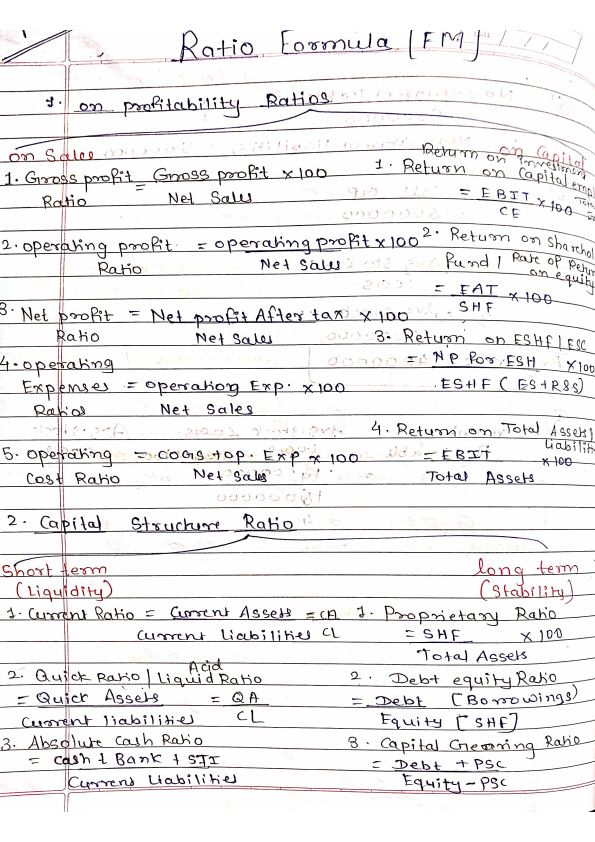 Ratio Formula [FM]
1. on profitability Ratios
on Sales
1. Gross profit = Gross profit × 100
Ratio Net Sales
2. operating profit = operating profit × 100
Ratio Net Sales
3. Net profit = Net profit After tax × 100
Ratio Net Sales
4. operating
Expenses = operating Exp. × 100
Ratios Net Sales
5. operating = COGS + op. Exp × 100
Cost Ratio Net Sales
on Capital
Return on investment
1. Return on Capital empl
= EBIT × 100
CE
2. Return on Sharehol
Fund / Rate of Return
on equity
= EAT × 100
SHF
3. Return on ESHF/ESC
= NP for ESH × 100
ESHF (ES+R&S)
4. Return on Total Assets/
Liabilit
= EBIT × 100
Total Assets
2. Capital Structure Ratio
Short term
(Liquidity)
1. Current Ratio = Current Assets = CA
Current Liabilities CL
2. Quick Ratio / Liquid Ratio
Acid
= Quick Assets = QA
Current liabilities CL
3. Absolute Cash Ratio
= Cash + Bank + STI
Current Liabilities
long term
(Stability)
1. Proprietary Ratio
= SHF × 100
Total Assets
2. Debt equity Ratio
= Debt (Borrowings)
Equity [SHF]
3. Capital Gearing Ratio
= Debt + PSC
Equity - PSC